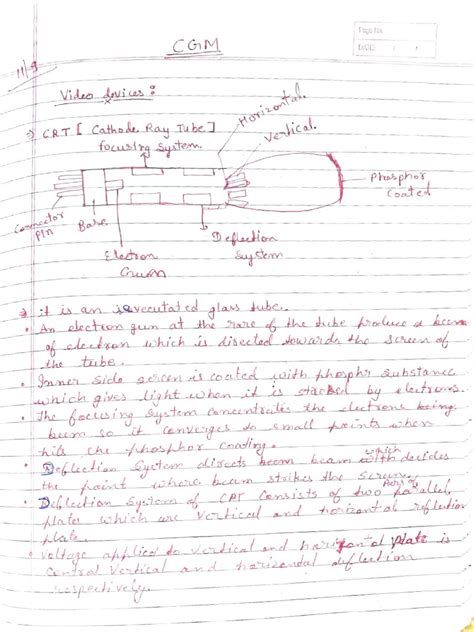 CGM
Page No.
Date: / /
11/9
Video devices:
→ CRT [Cathode Ray Tube]
Horizontal
Vertical
focusing system
Phosphor
Coated
Connector
Pin
Base
Electron
Gun
Deflection
System
→ it is an evecutated glass tube.
• An electron gun at the rare of the tube produce a beem
of electron which is disected towards the screen of
the tube.
• Inner side screen is coated with phosphr substance
which gives light when it is by electrons.
• The focusing system concentrate the electrone being
beem so it converges to small points when
hits the phosphor coading.
• Deflection System directs beem beam which decides
the point where beam strikes the screen.
• Deflection System of CRT consists of two pairs of parallel
plates which are Vertical and horizontal reflection
plate.
• voltage applied to vertical and horizontal plate is
Control Vertical and horizendal deflection
respectively.